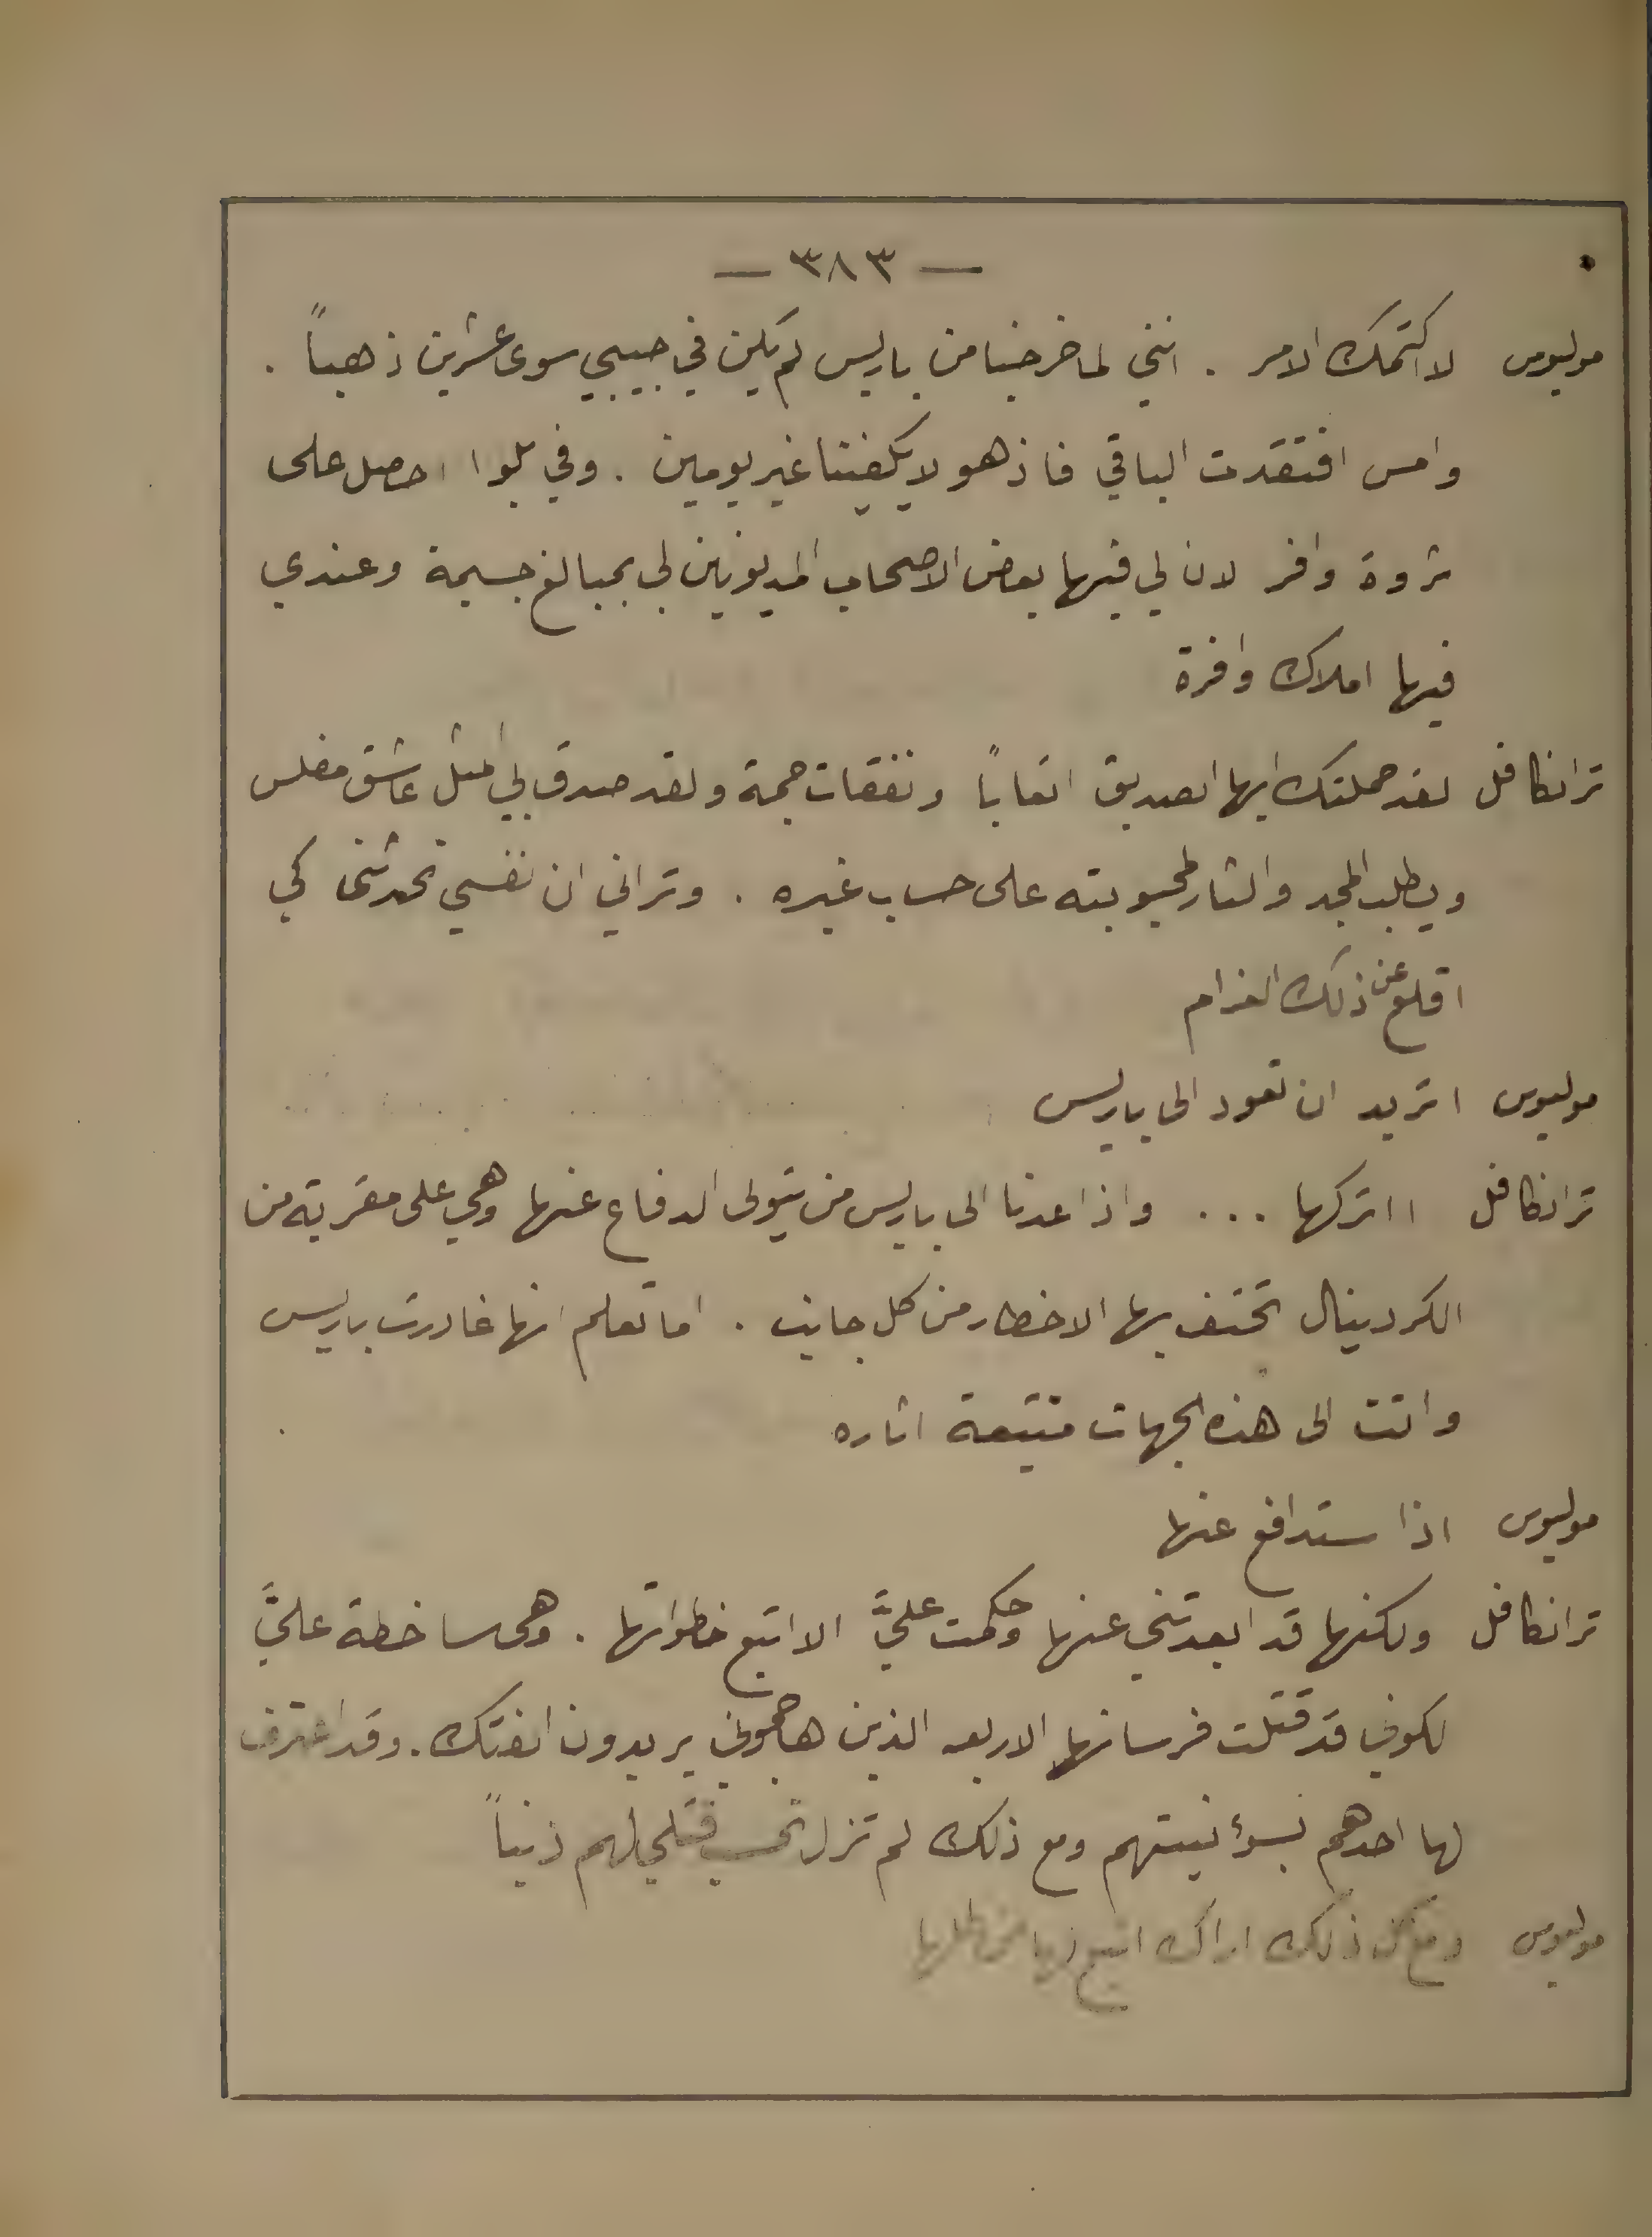 — ٣٨٣ —
موليوس لا اكتمك الامر . انني لما خرجنا من باريس لم يكن في جيبي سوى عشرين ذهباً .
وامس افتقدت الباقي فاذ هو لا يكفينا غير يومين . وفي بلوا احصل على
ثروة وافر لان لي فيها بعض الاصحاب المديونين لي بمبالغ جسيمة وعندي
فيها املاك وافرة
ترانكافل لقد حملتك ايها الصديق اتعاباً ونفقات جمة ولقد صدق بي المثل عاشق مفلس
ويطلب المجد والثار لمحبوبته على حساب غيره . وتراني ان نفسي تحدثني كي
اقلع عن ذلك الغرام
موليوس اتريد ان تعود الى باريس
ترانكافل ااتركها ... واذا عدنا الى باريس من يتولى الدفاع عنها وهي على مقربة من
الكردينال تحتف بها الاخطار من كل جانب . اما تعلم انها غادرت باريس
واتت الى هذه الجهات متتبعة اثاره
موليوس اذا ستدافع عنها
ترانكافل ولكنها قد ابعدتني عنها وحكمت عليَّ الا اتبع خطواتها . وهي ساخطة عليَّ
لكوني قد قتلت فرسانها الاربعه الذين هاجموني يريدون الفتك . وقد اعترف
لها احدهم بسوء نيتهم ومع ذلك لم تزل تحسب قتلي لهم ذنباً
موليوس ومع كل ذلك اراك